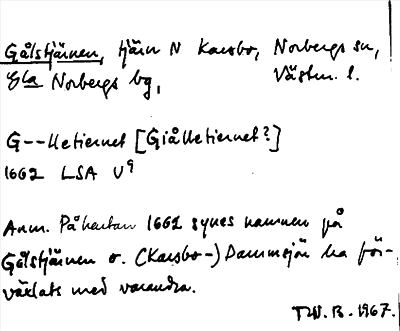 Gålstjärnen, tjärn N Karsbo, Norbergs sn,
Gla Norbergs bg, Västm. l.
G--lletiernet [Giålletiernet?]
1662 LSA U9
Anm. På kartan 1662 synes namnen på
Gålstjärnen o. (Karsbo-) Dammsjön ha för-
växlats med varandra.
TW. B. 1967.